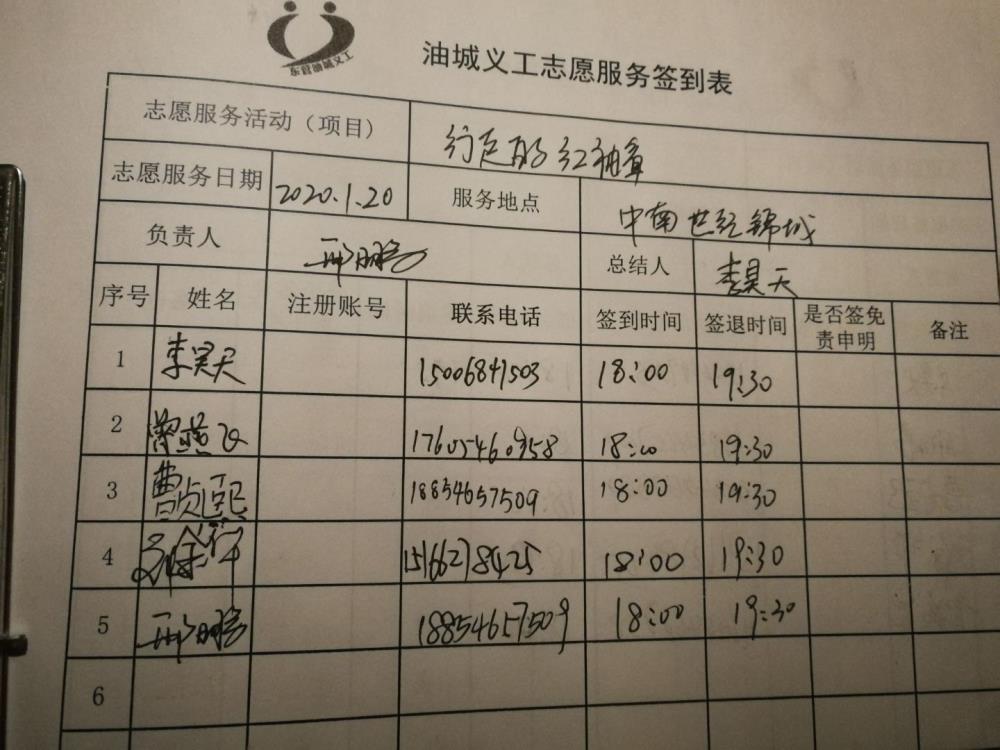 东营油城义工
油城义工志愿服务签到表
志愿服务活动（项目） 行走的红袖章
志愿服务日期 2020.1.20 服务地点 中南世纪锦城
负责人 邢鹏 总结人 李昊天
序号 姓名 注册账号 联系电话 签到时间 签退时间 是否签免责申明 备注
1 李昊天 15006841503 18:00 19:30
2 17605460958 18:00 19:30
3 曹贞熙 18854657509 18:00 19:30
4 15166278425 18:00 19:30
5 邢鹏 18854657509 18:00 19:30
6